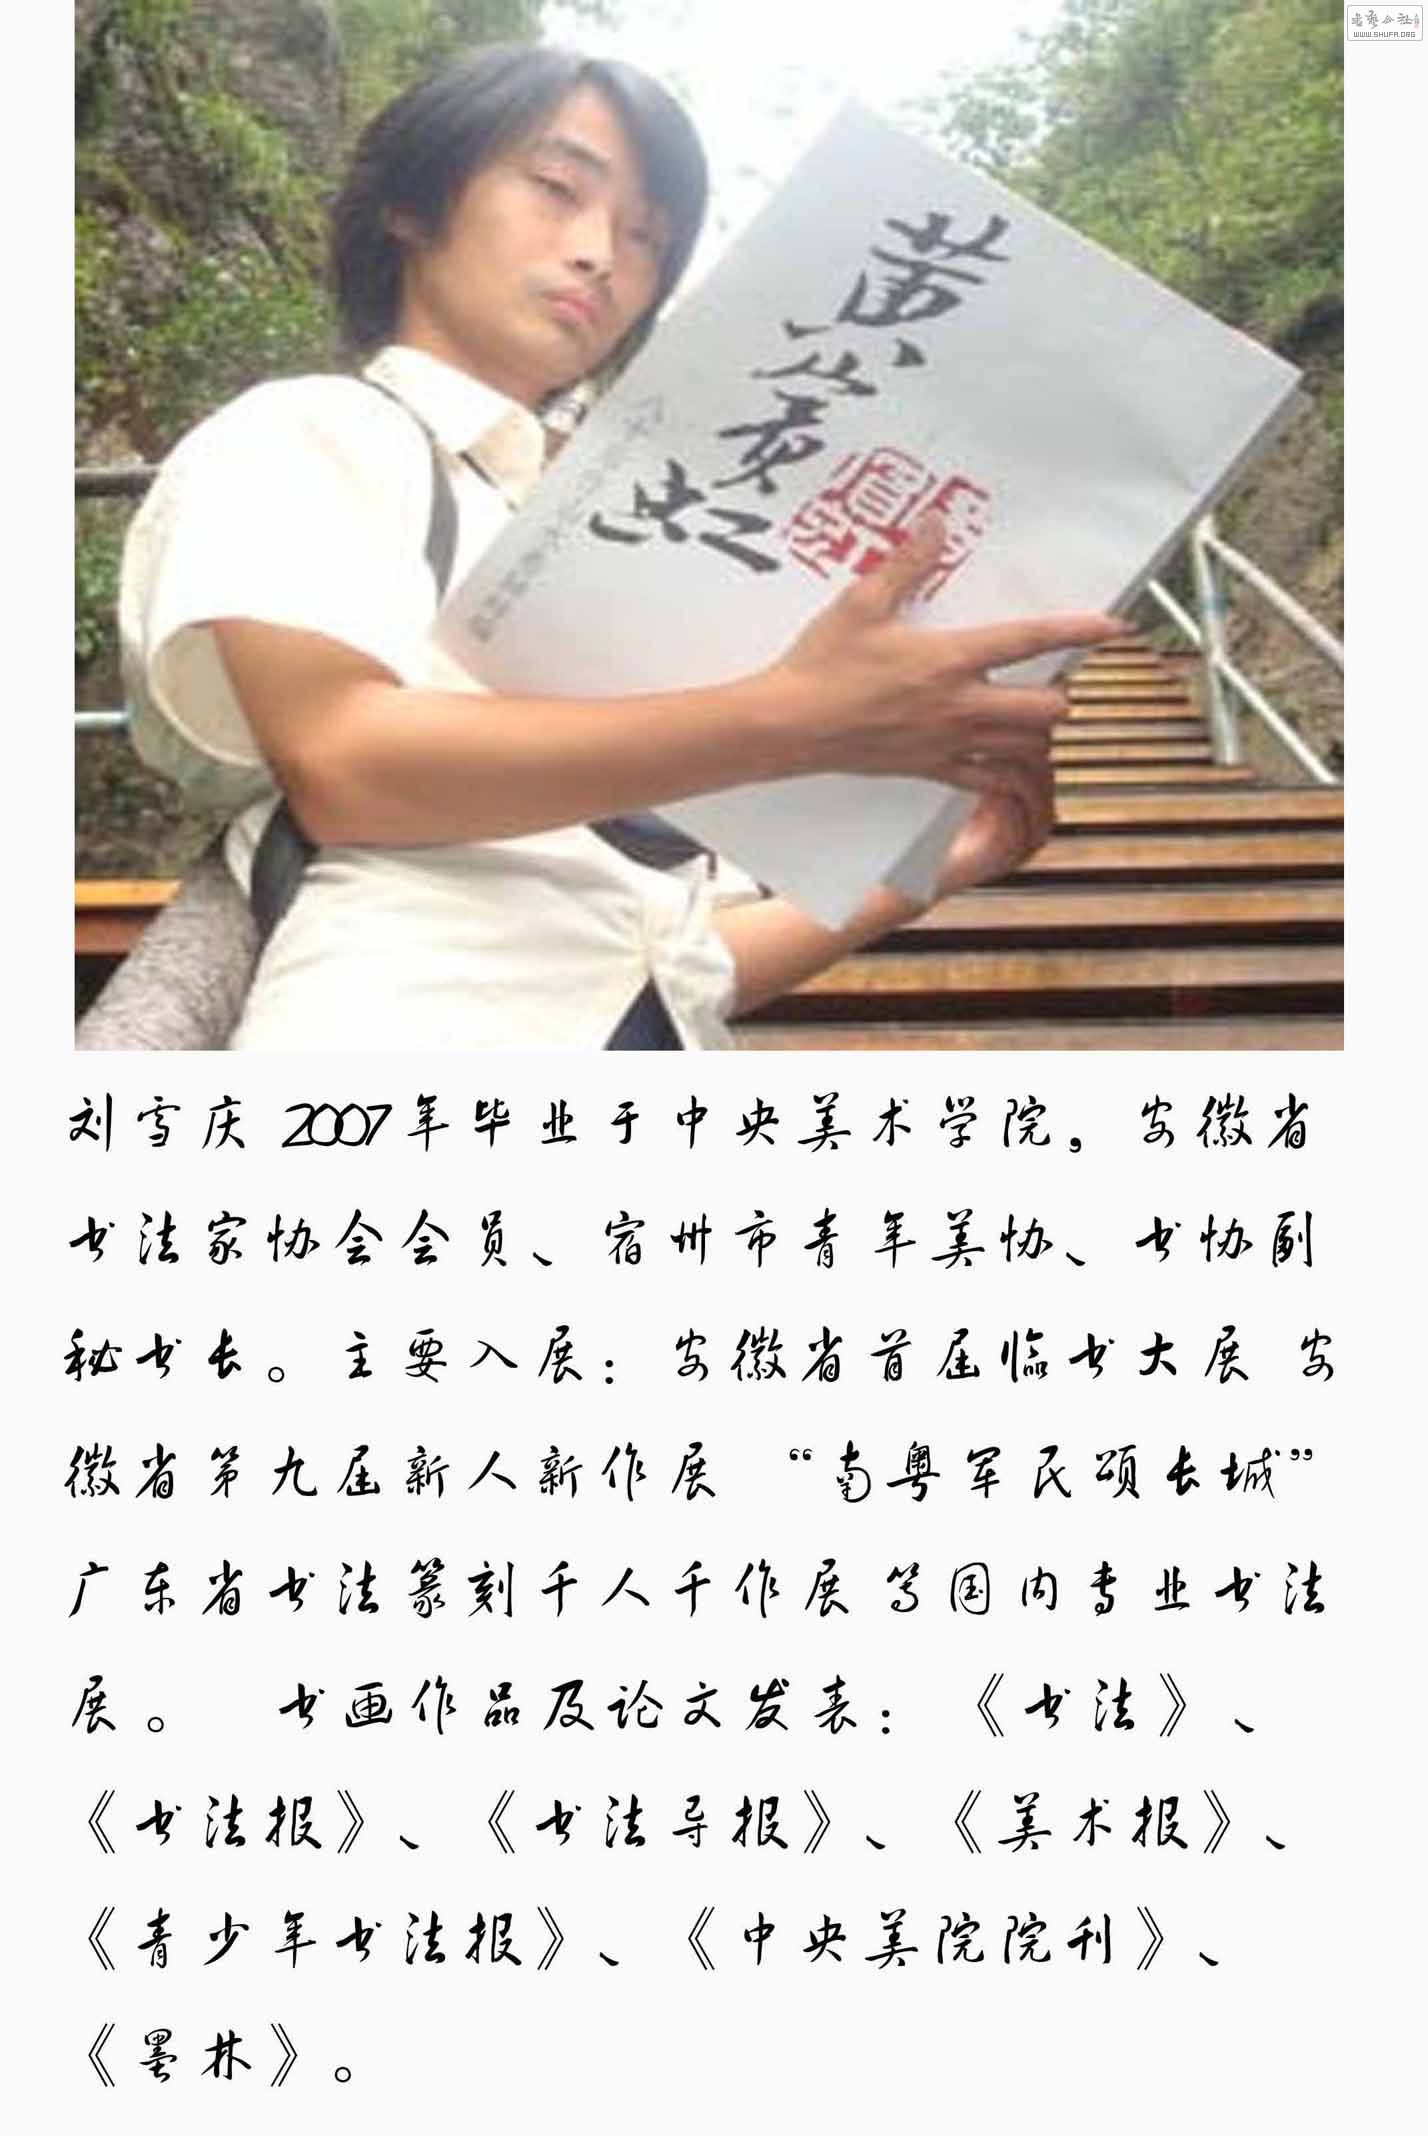 书艺公社
WWW.SHUFA.ORG
黄宾虹
刘雪庆 2007年毕业于中央美术学院，安徽省
书法家协会会员、宿州市青年美协、书协副
秘书长。主要入展：安徽省首届临书大展 安
徽省第九届新人新作展 “南粤军民颂长城”
广东省书法篆刻千人千作展 等国内专业书法
展。 书画作品及论文发表：《书法》、
《书法报》、《书法导报》、《美术报》、
《青少年书法报》、《中央美院院刊》、
《墨林》。